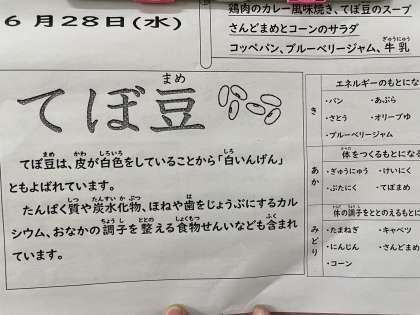 6月28日(水)
鶏肉のカレー風味焼き、てぼ豆のスープ
さんどまめとコーンのサラダ
コッペパン、ブルーベリージャム、牛乳
ぎゅうにゅう
まめ
てぼ豆
まめ かわ しろいろ しろ
てぼ豆は、皮が白色をしていることから「白いんげん」
ともよばれています。
しつ たんすいかぶつ は
たんぱく質や炭水化物、ほねや歯をじょうぶにするカル
ちょうし ととの しょくもつ ふく
シウム、おなかの調子を整える食物せんいなども含まれ
ています。
き
エネルギーのもとにな
・パン ・あぶら
・さとう ・オリーブゆ
・ブルーベリージャム
あか
体をつくるもとになる
・ぎゅうにゅう ・けいにく
・ぶたにく ・てぼまめ
みどり
体の調子をととのえるもとに
・たまねぎ ・キャベツ
・にんじん ・さんどまめ
・コーン